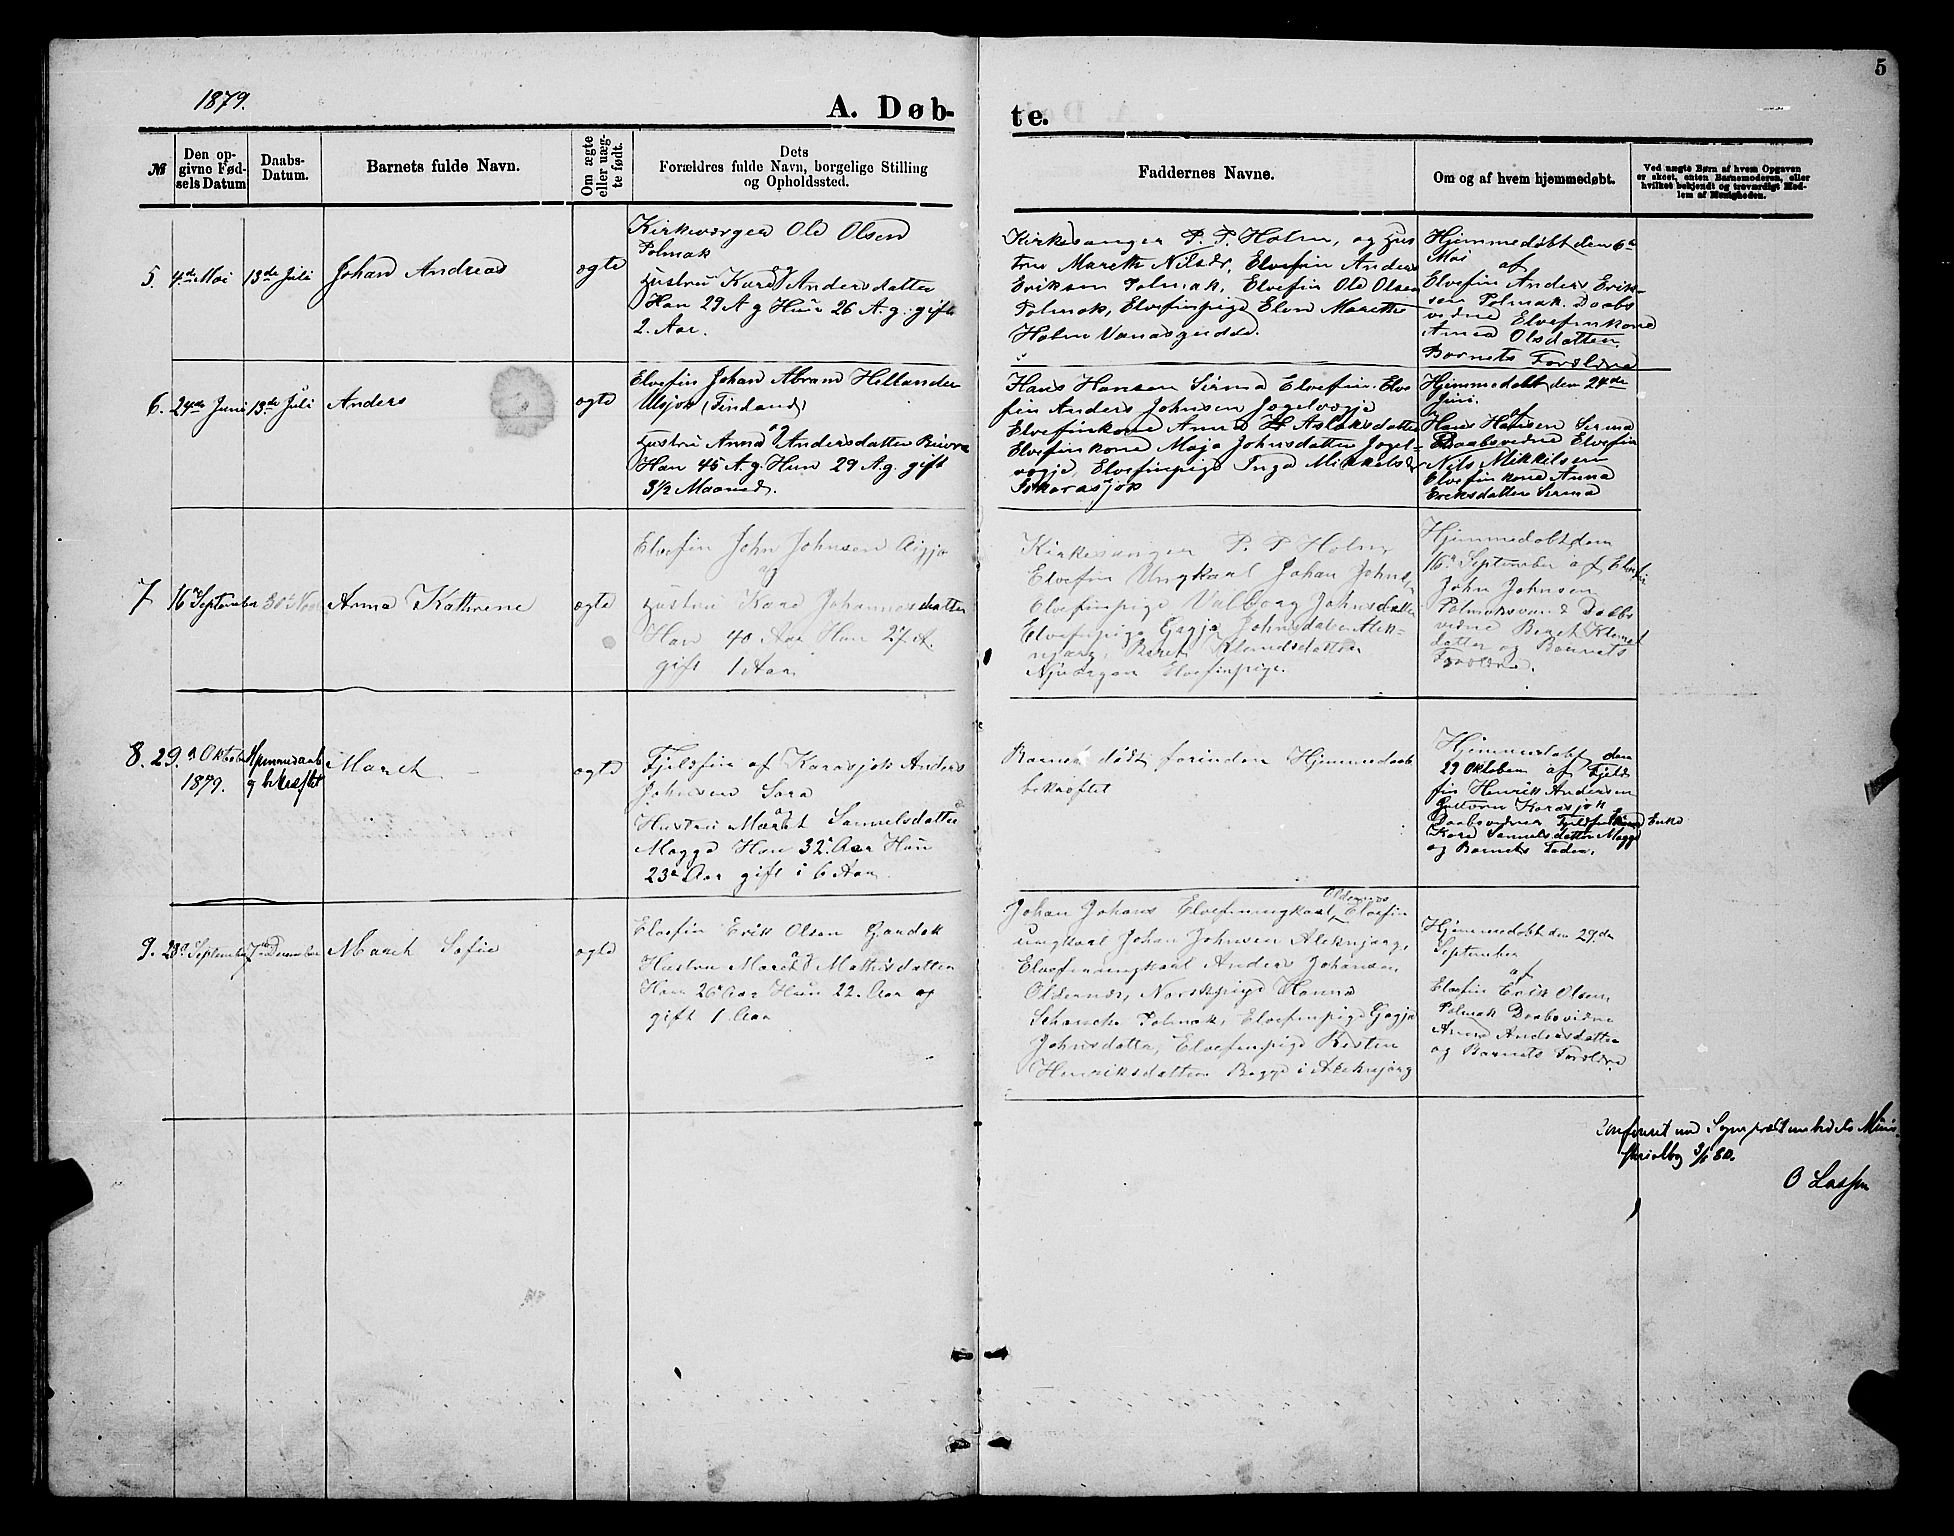 5
1879.
A. Døb-
te.
№
Den op-
givne Fød-
sels Datum
Daabs-
Datum.
Barnets fulde Navn.
Om ægte
eller uæg-
te født.
Dets
Forældres fulde Navn, borgelige Stilling
og Opholdssted.
Faddernes Navne.
Om og af hvem hjemmedøbt.
Ved uægte Børn af hvem Opgaven
er skeet, enten Barnemoderen, eller
hvilket bekjendt og troværdigt Med-
lem af Menigheden.
5.
4de Mai
13de Juli
Johan Andreas
ægte
Kirkeværger Ole Olsen
Polmak
og
Hustru Kare Andersdatter
Han 29 A g Hun 26 A. g. gift
2. Aar.
Kirkesanger P. P. Holm, og Hus
tru Mareth Nilsdr, Elvefin Anders
Eriksen Polmak, Elvefin Ole Olsen
Polmak, Elvefinpige Elen Marethe
Holm
Hjemmedøbt den 6te
Mai af
Elvefin Anders Erik-
sen Polmak. Daabs
vidne Elvefinkone
Anna Olsdatter.
Barnets Forældre
6.
24de Juni
13de Juli
Anders
ægte
Elvefin Johan Abram Hellander
Utsjok (Finland)
og
Hustru Anna Andersdatter
Han 45 A.g. Hun 29 A.g. gift
3½ Maaned.
Hans Hansen Sirma Elvefin. Elve
fin Anders Johnsen
Elvefinkone Anna H Aslaksdatter
Elvefinkone Maja Johnsdatter
Elvefinpige Inga Mikkelsdr
Hjemmedøbt den 24de
Juni.
af
Hans Hansen Sirma
Daabsvidne Elvefin
Nils Mikkelsen
Elvefinkone Anna
Eriksdatter Sirma
7
16de September
30te Nov
Anna Kathrine
ægte
Elvefin John Johnsen
og
Hustru Kare Johannesdatter
Han 40 Aar Hun 27 A.
gift 1 Aar.
Kirkesanger P. P Holm
Elvefin Ungkarl Johan Johns,
Elvefinpige Valborg Johnsdatter
Elvefinpige Gagja Johnsdatter Alek-
njarg, Beret Klemetsdatter
Elvefinpige.
Hjemmedøbt den
16de September af Elvefin
John Johnsen
Polmaksvand Daabs
vidne Beret Klemet
datter og Barnets
Forældre.
8.
29de Oktober
1879.
Hjemmedaab
bekræftet
Mareh
ægte
Fjeldfin af Karasjok Anders
Johnsen Sara
og
Hustru Maret Samuelsdatter
Magga Han 32 Aar Hun
23 Aar gift i 6 Aar.
Barnet døde forinden Hjemmedaab
bekræftet
Hjemmedøbt den
29 Oktober af Fjeld
fin Henrik Andersen
Karasjok
Daabsvidner Enke
Kare Samuelsdatter Magga
og Barnets Fader.
9.
28de September
7de December
Mareh Sofie
ægte
Elvefin Erik Olsen
og
Hustru Mareh Mathisdatter
Han 26 Aar Hun 22. Aar og
gift 1. Aar
Johan Johans Elvefinungkarl Oldernæs, Elvefin
ungkarl Johan Johnsen Aleknjarg,
Elvefinungkarl Anders Johansen
Oldernæs, Norskpige Hanna
Scharsche Polmak, Elvefinpige Gagja
Johnsdatter, Elvefinpige Kirsten
Henriksdatter Begge i Aleknjarg
Hjemmedøbt den 29de
September
af
Elvefin Erik Olsen
Polmak Daabsvidne
Anna Andersdatter
og Barnets Forældre
Confereret med Sognepræstembedets Minis-
terialbog 3/1 80.
O Lassen